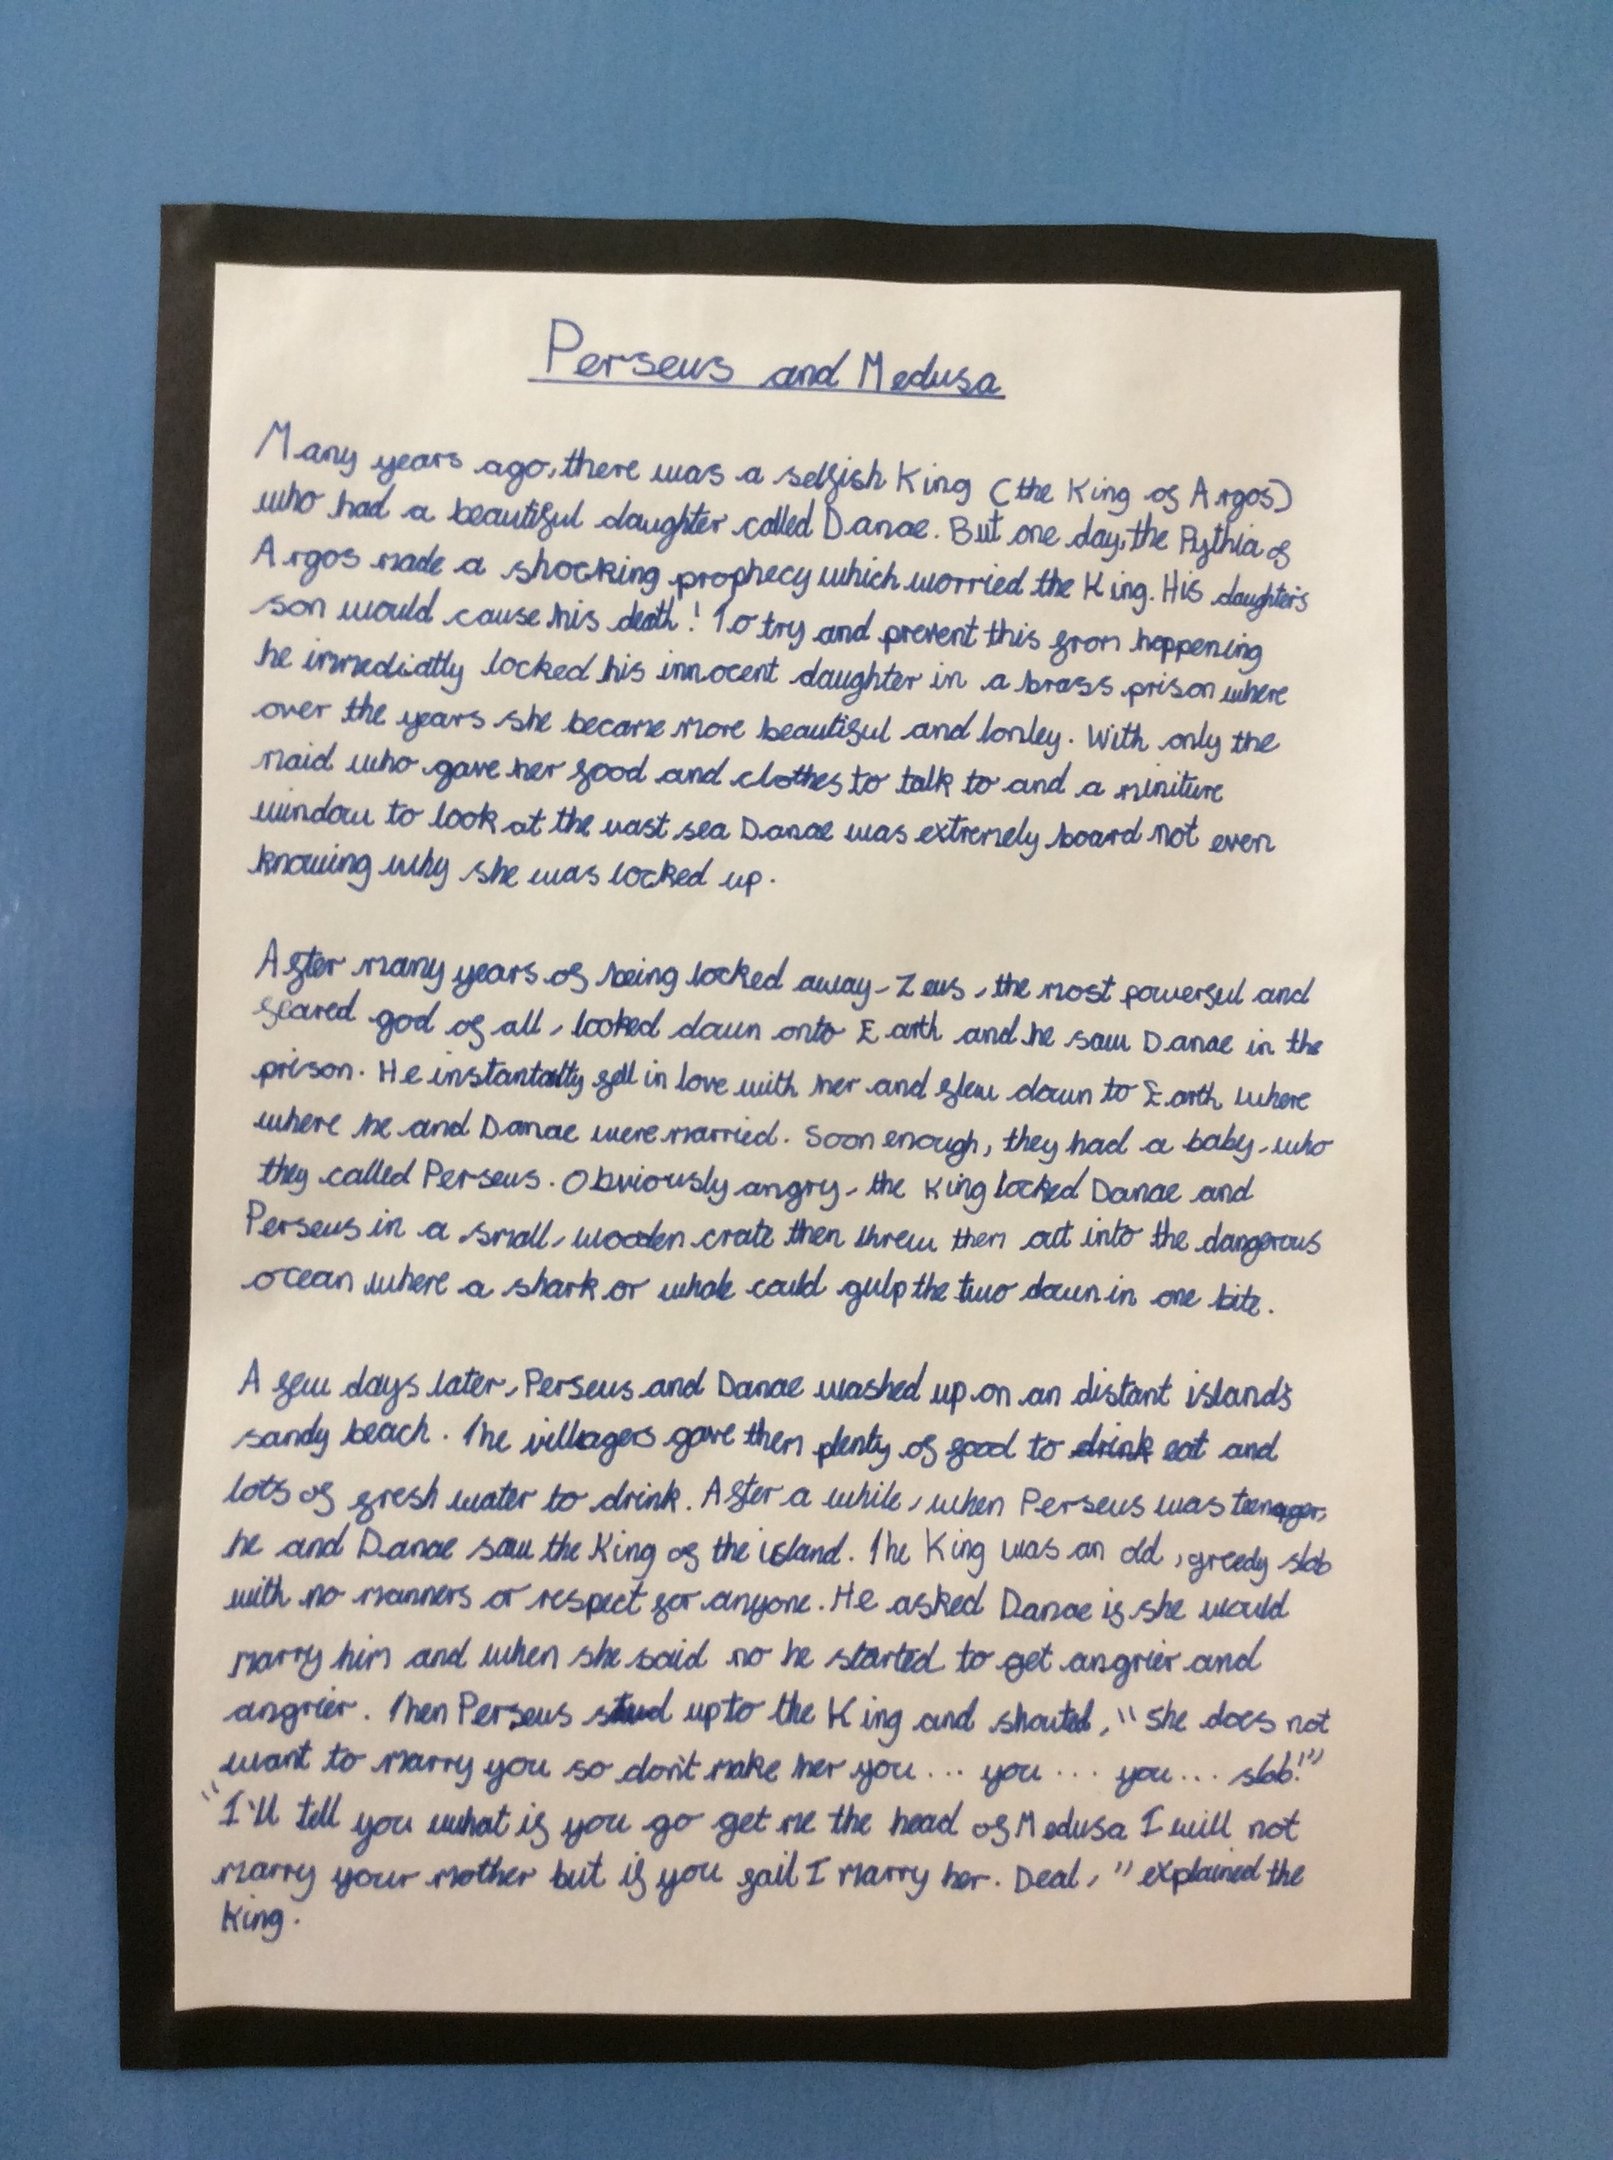 Perseus and Medusa
Many years ago, there was a selfish King (the King of Argos)
who had a beautiful daughter called Danae. But one day, the Pythia of
Argos made a shocking prophecy which worried the King. His daughter's
son would cause his death! To try and prevent this from happening
he immediatly locked his innocent daughter in a brass prison where
over the years she became more beautiful and lonley. With only the
maid who gave her food and clothes to talk to and a miniture
window to look at the vast sea Danae was extremely board not even
knowing why she was locked up.
After many years of being locked away, Zeus, the most powerful and
feared god of all, looked down onto Earth and he saw Danae in the
prison. He instantally fell in love with her and flew down to Earth where
where he and Danae were married. Soon enough, they had a baby, who
they called Perseus. Obviously angry, the King locked Danae and
Perseus in a small, wooden crate then threw them out into the dangerous
ocean where a shark or whale could gulp the two down in one bite.
A few days later, Perseus and Danae washed up on an distant island's
sandy beach. The villagers gave them plenty of food to drink eat and
lots of fresh water to drink. After a while, when Perseus was teenager,
he and Danae saw the King of the island. The King was an old, greedy slob
with no manners or respect for anyone. He asked Danae if she would
marry him and when she said no he started to get angrier and
angrier. Then Perseus stud up to the King and shouted, "She does not
want to marry you so don't make her you... you... you... slob!"
"I'll tell you what if you go get me the head of Medusa I will not
marry your mother but if you fail I marry her. Deal," explained the
King.